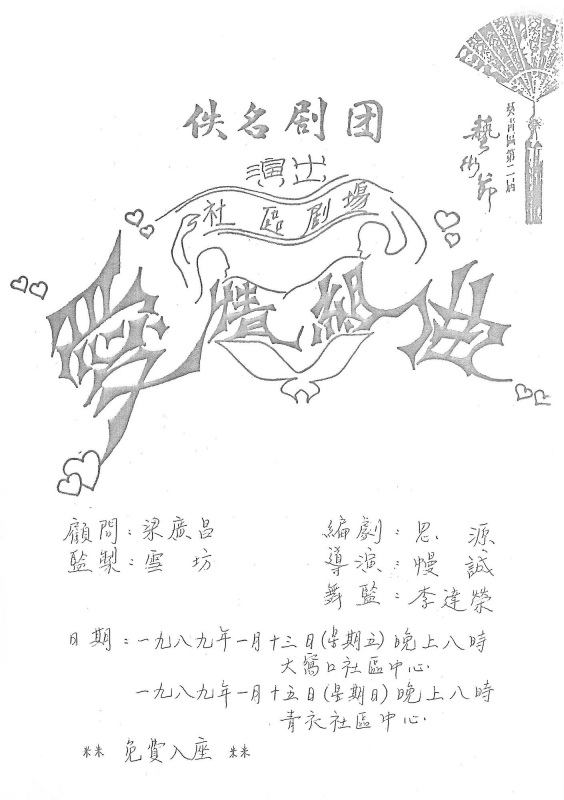 佚名剧团
演出
社區剧場
愛情組曲
葵青區第二屆
藝術節
顧問：梁廣昌
監製：雲坊
編劇：思源
導演：慢誠
舞監：李達榮
日期：一九八九年一月十三日(星期五)晚上八時
大窩口社區中心
一九八九年一月十五日(星期日)晚上八時
青衣社區中心
** 免費入座 **